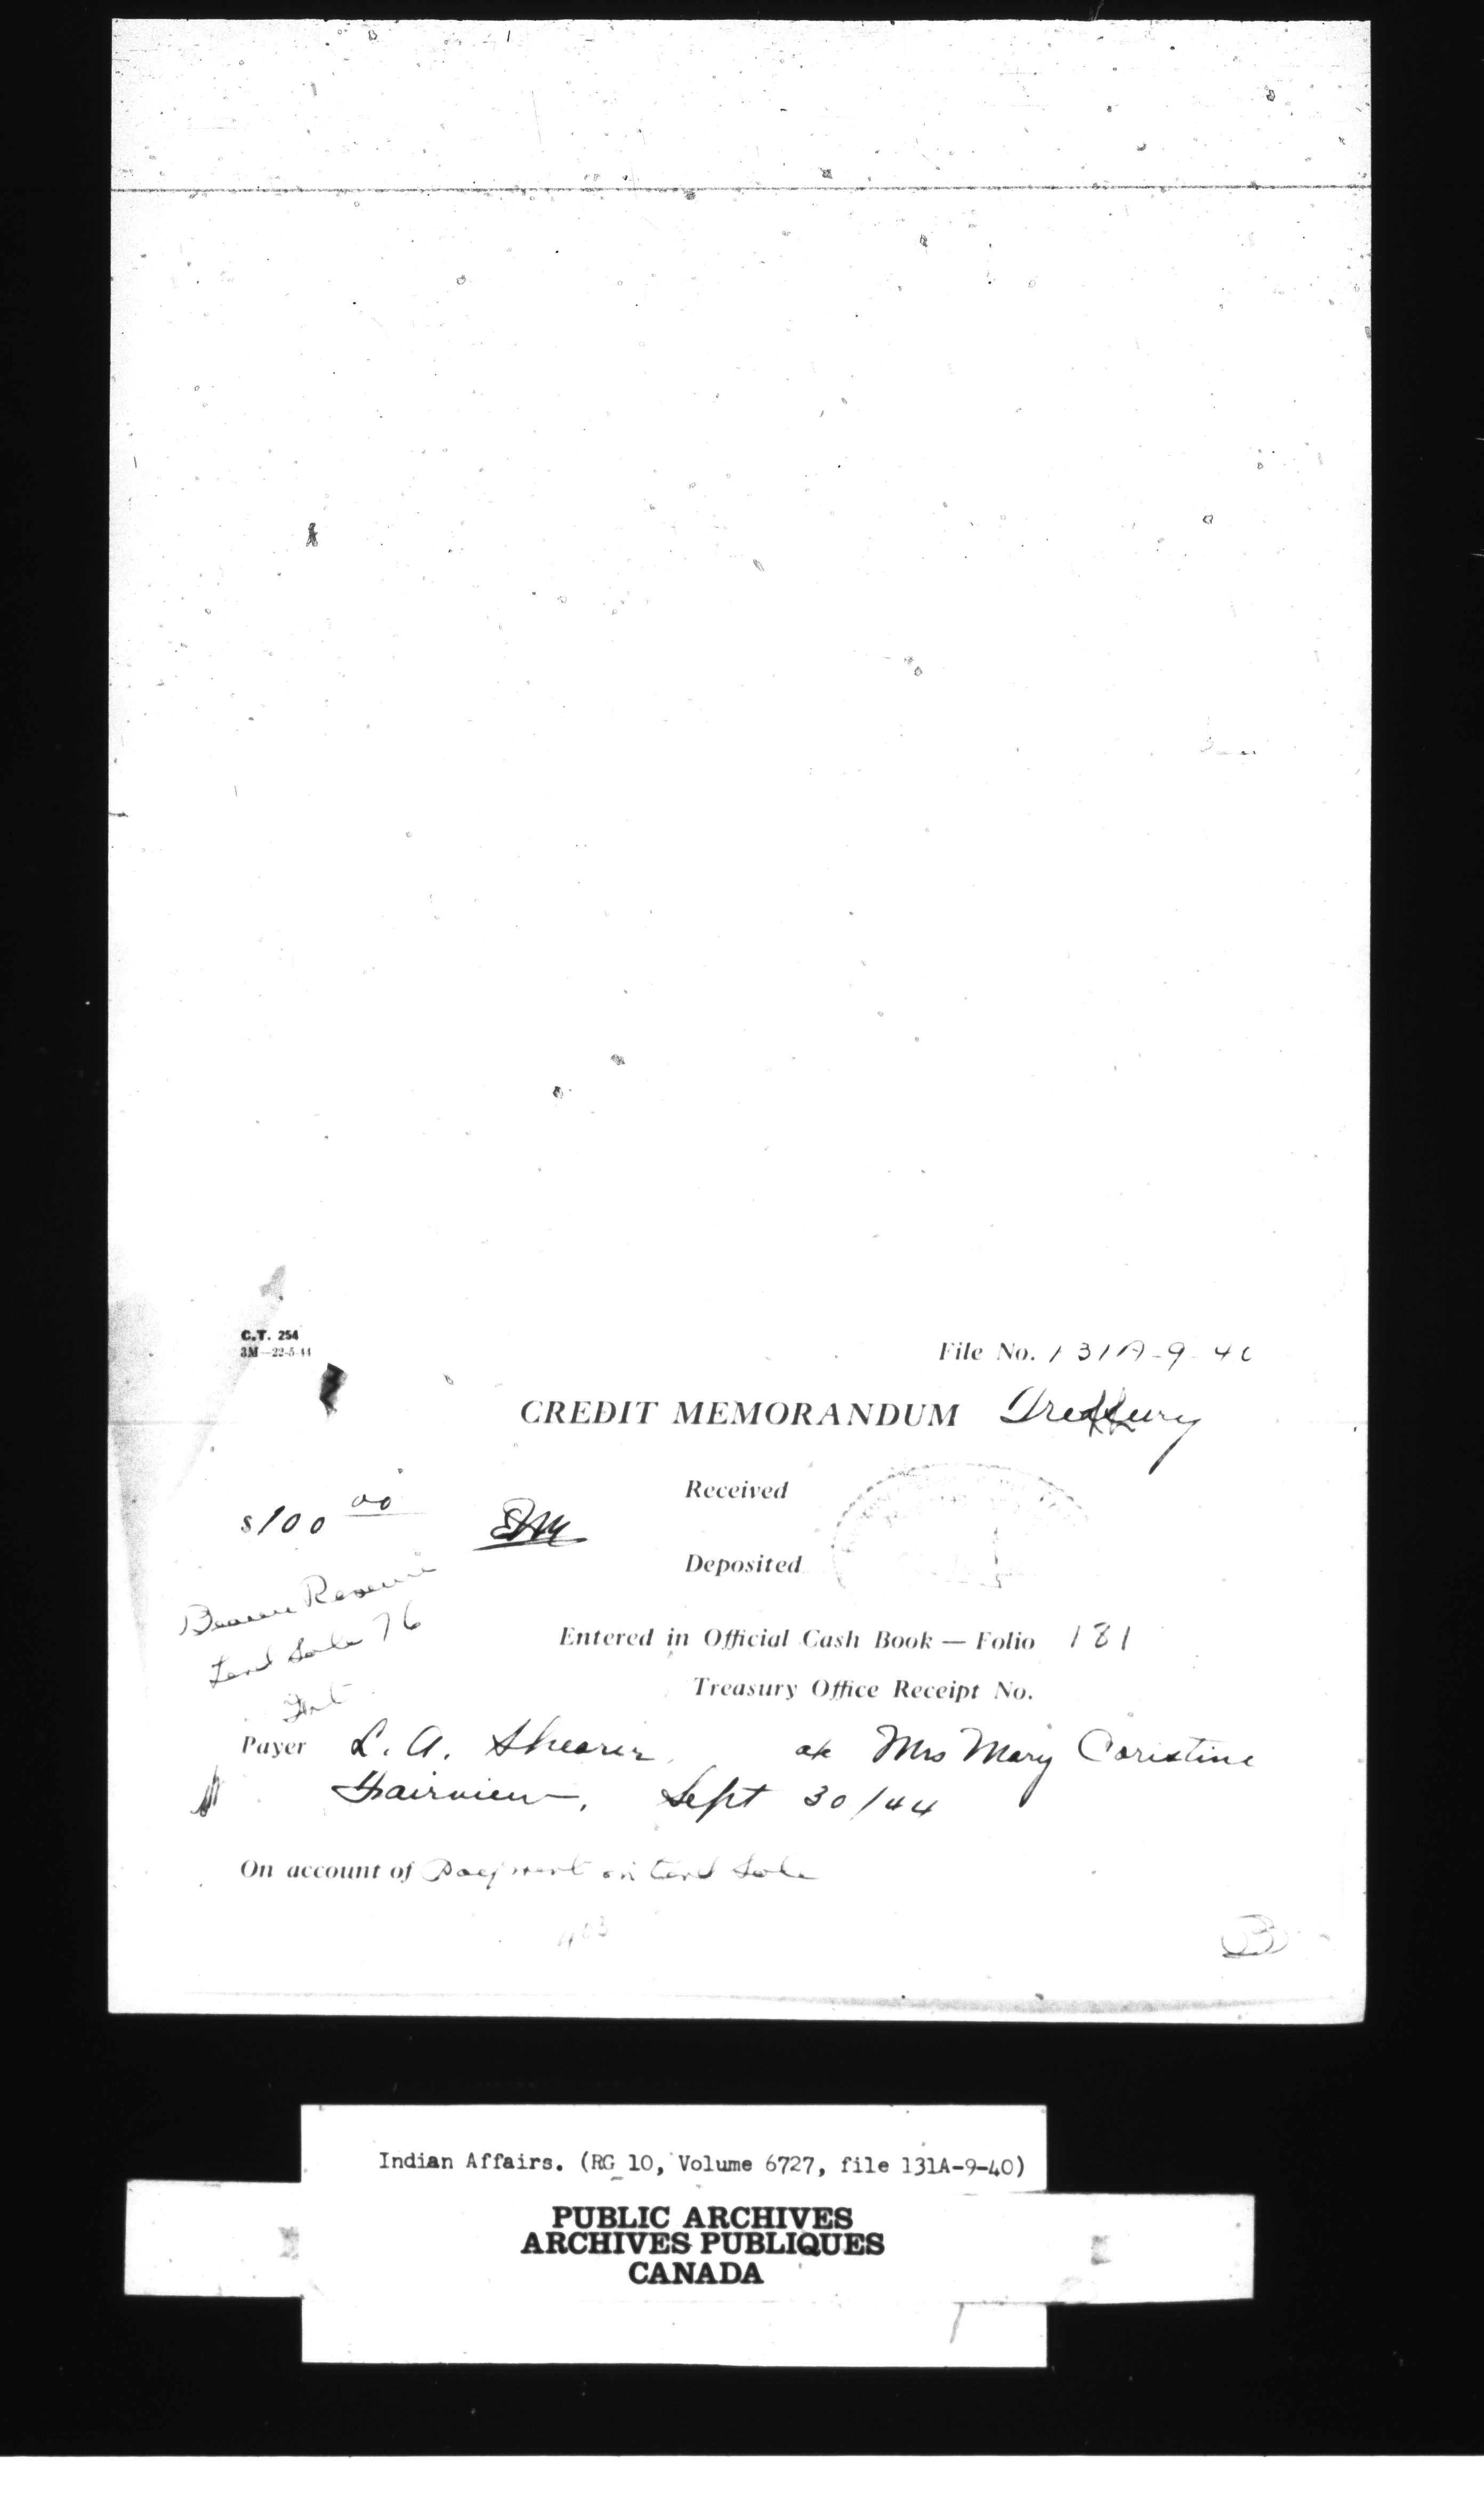 C.T. 254
3M-22-5-44
File No. 131A-9-40
CREDIT MEMORANDUM Treasury
Received
$100 00
Deposited
Beaver Reserve
Land Sale 76
Entered in Official Cash Book — Folio 181
Treasury Office Receipt No.
Int
Payer L. A. Shearer a/c Mrs Mary Coristine
Fairview, Sept 30/44
On account of Payment on land sale
Indian Affairs. (RG 10, Volume 6727, file 131A-9-40)
PUBLIC ARCHIVES
ARCHIVES PUBLIQUES
CANADA